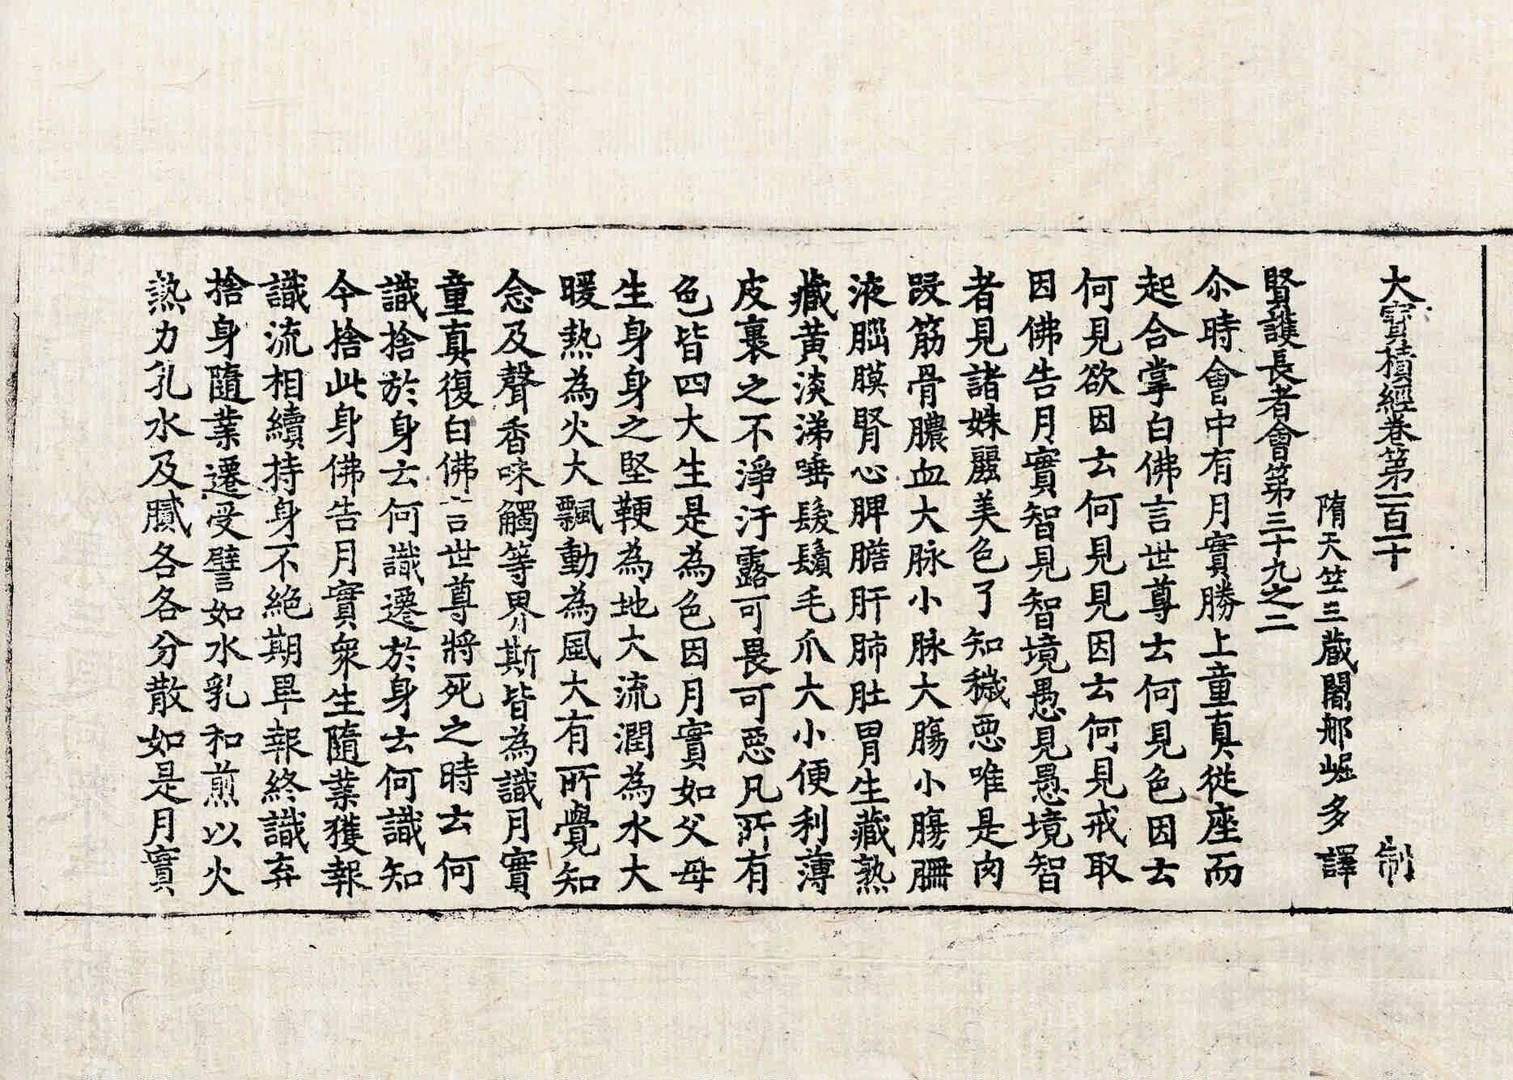 大寶積經卷第一百一十 制
隋天竺三藏闍那崛多譯
賢護長者會第三十九之二
尒時會中有月實勝上童真從座而
起合掌白佛言世尊云何見色因云
何見欲因云何見見因云何見戒取
因佛告月實智見智境愚見愚境智
者見諸姝麗美色了知穢惡唯是肉
段筋骨膿血大脉小脉大腸小腸𦙽
液𦠀膜腎心脾膽肝肺肚胃生藏熟
藏黃淡涕唾髮鬚毛爪大小便利薄
皮裹之不淨汙露可畏可惡凡所有
色皆四大生是為色因月實如父母
生身身之堅鞕為地大流潤為水大
暖熱為火大飄動為風大有所覺知
念及聲香味觸等界斯皆為識月實
童真復白佛言世尊將死之時云何
識捨於身云何識遷於身云何識知
今捨此身佛告月實衆生隨業獲報
識流相續持身不絕期畢報終識弃
捨身隨業遷受譬如水乳和煎以火
熱力乳水及膩各各分散如是月實